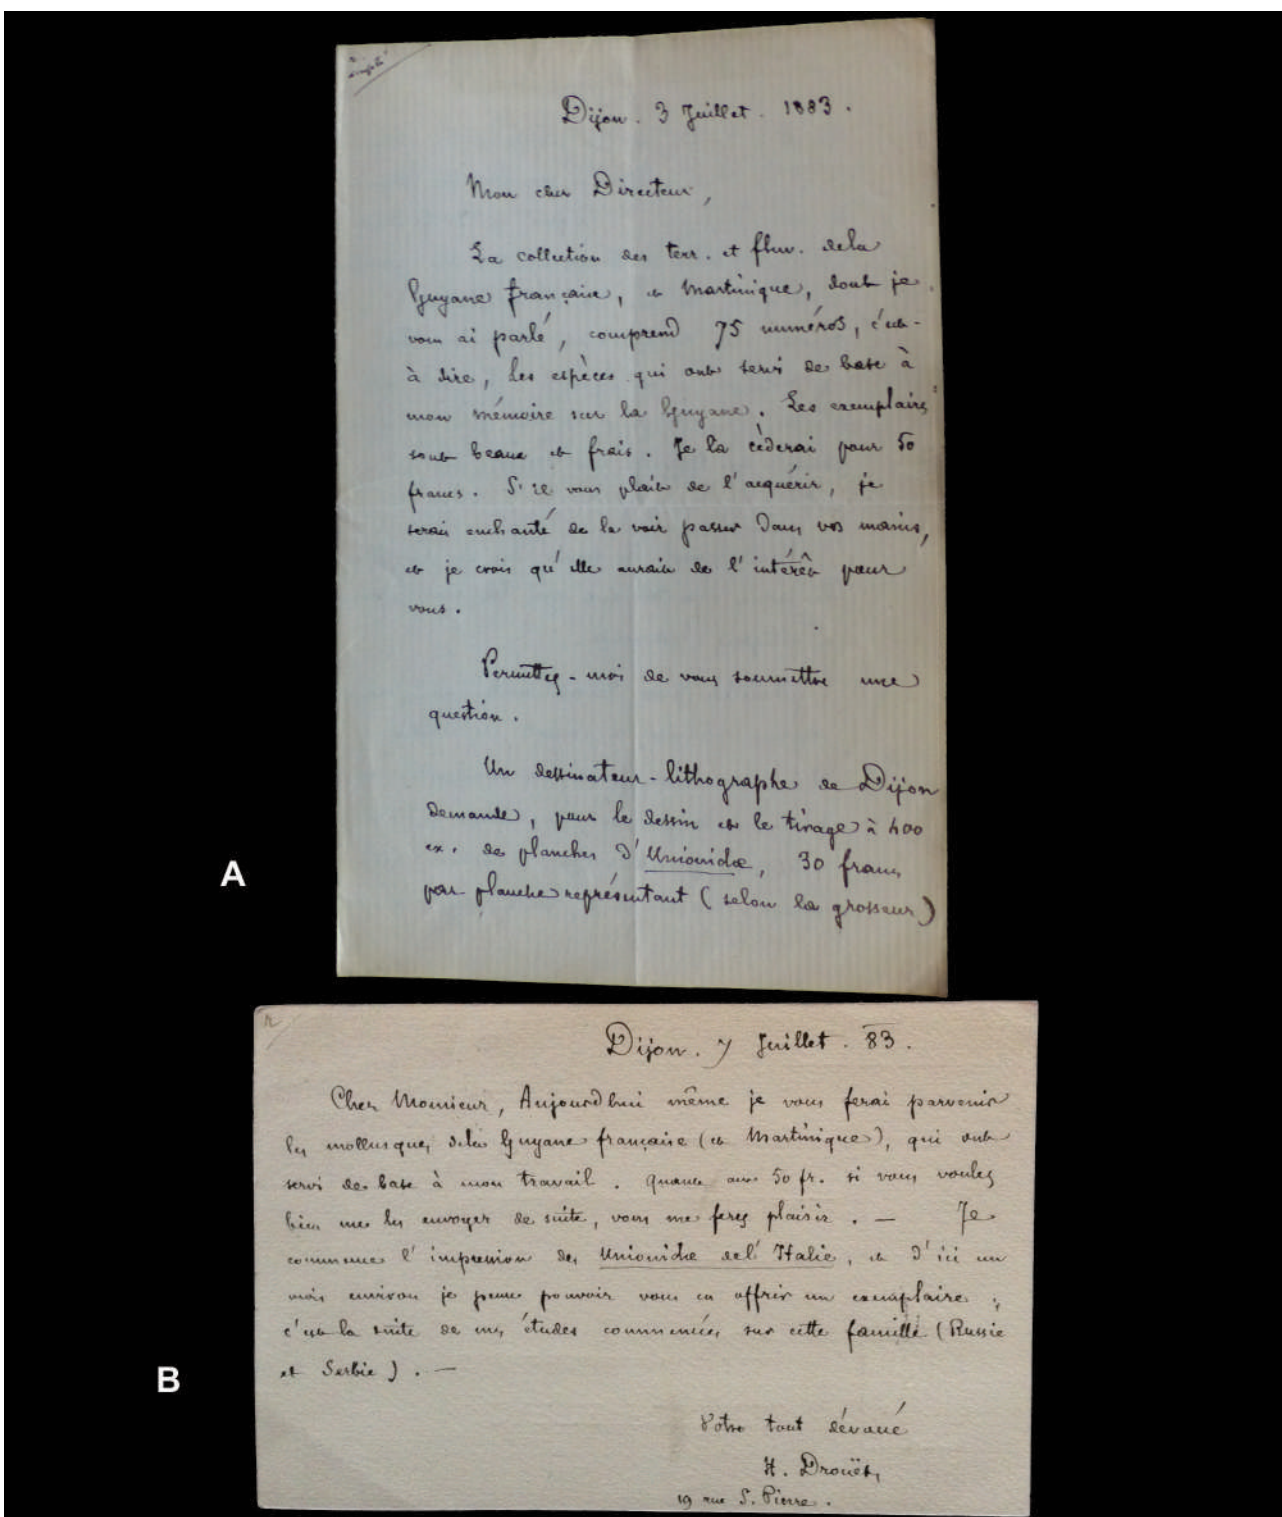 Dijon. 3 Juillet. 1883.
Mon cher Directeur,
La collection des terr. et fluv. de la
Guyane française, et Martinique, dont je
vous ai parlé, comprend 75 numéros, c'est-
à dire, les espèces qui ont servi de base à
mon mémoire sur la Guyane. Les exemplaires
sont beaux et frais. Je la cèderai pour 50
francs. S'il vous plait de l'acquérir, je
serai enchanté de la voir passer dans vos mains,
et je crois qu'elle aurait de l'intérêt pour
vous.
Permettez-moi de vous soumettre une
question.
Un dessinateur-lithographe de Dijon
demande, pour le dessin et le tirage à 400
ex. de planches d'Unionidæ, 30 francs
par planche représentant (selon la grosseur)
A
Dijon. 7 Juillet. 83.
Cher Monsieur, Aujourd'hui même je vous ferai parvenir
les mollusques de la Guyane française (et Martinique), qui ont
servi de base à mon travail. Quant aux 50 fr. si vous voulez
bien me les envoyer de suite, vous me ferez plaisir. — Je
commence l'impression des Unionidæ de l'Italie, et d'ici un
mois environ je pense pouvoir vous en offrir un exemplaire;
c'est la suite de mes études commencées sur cette famille (Russie
et Serbie). —
B
Votre tout dévoué
H. Drouët,
19 rue S. Pierre.